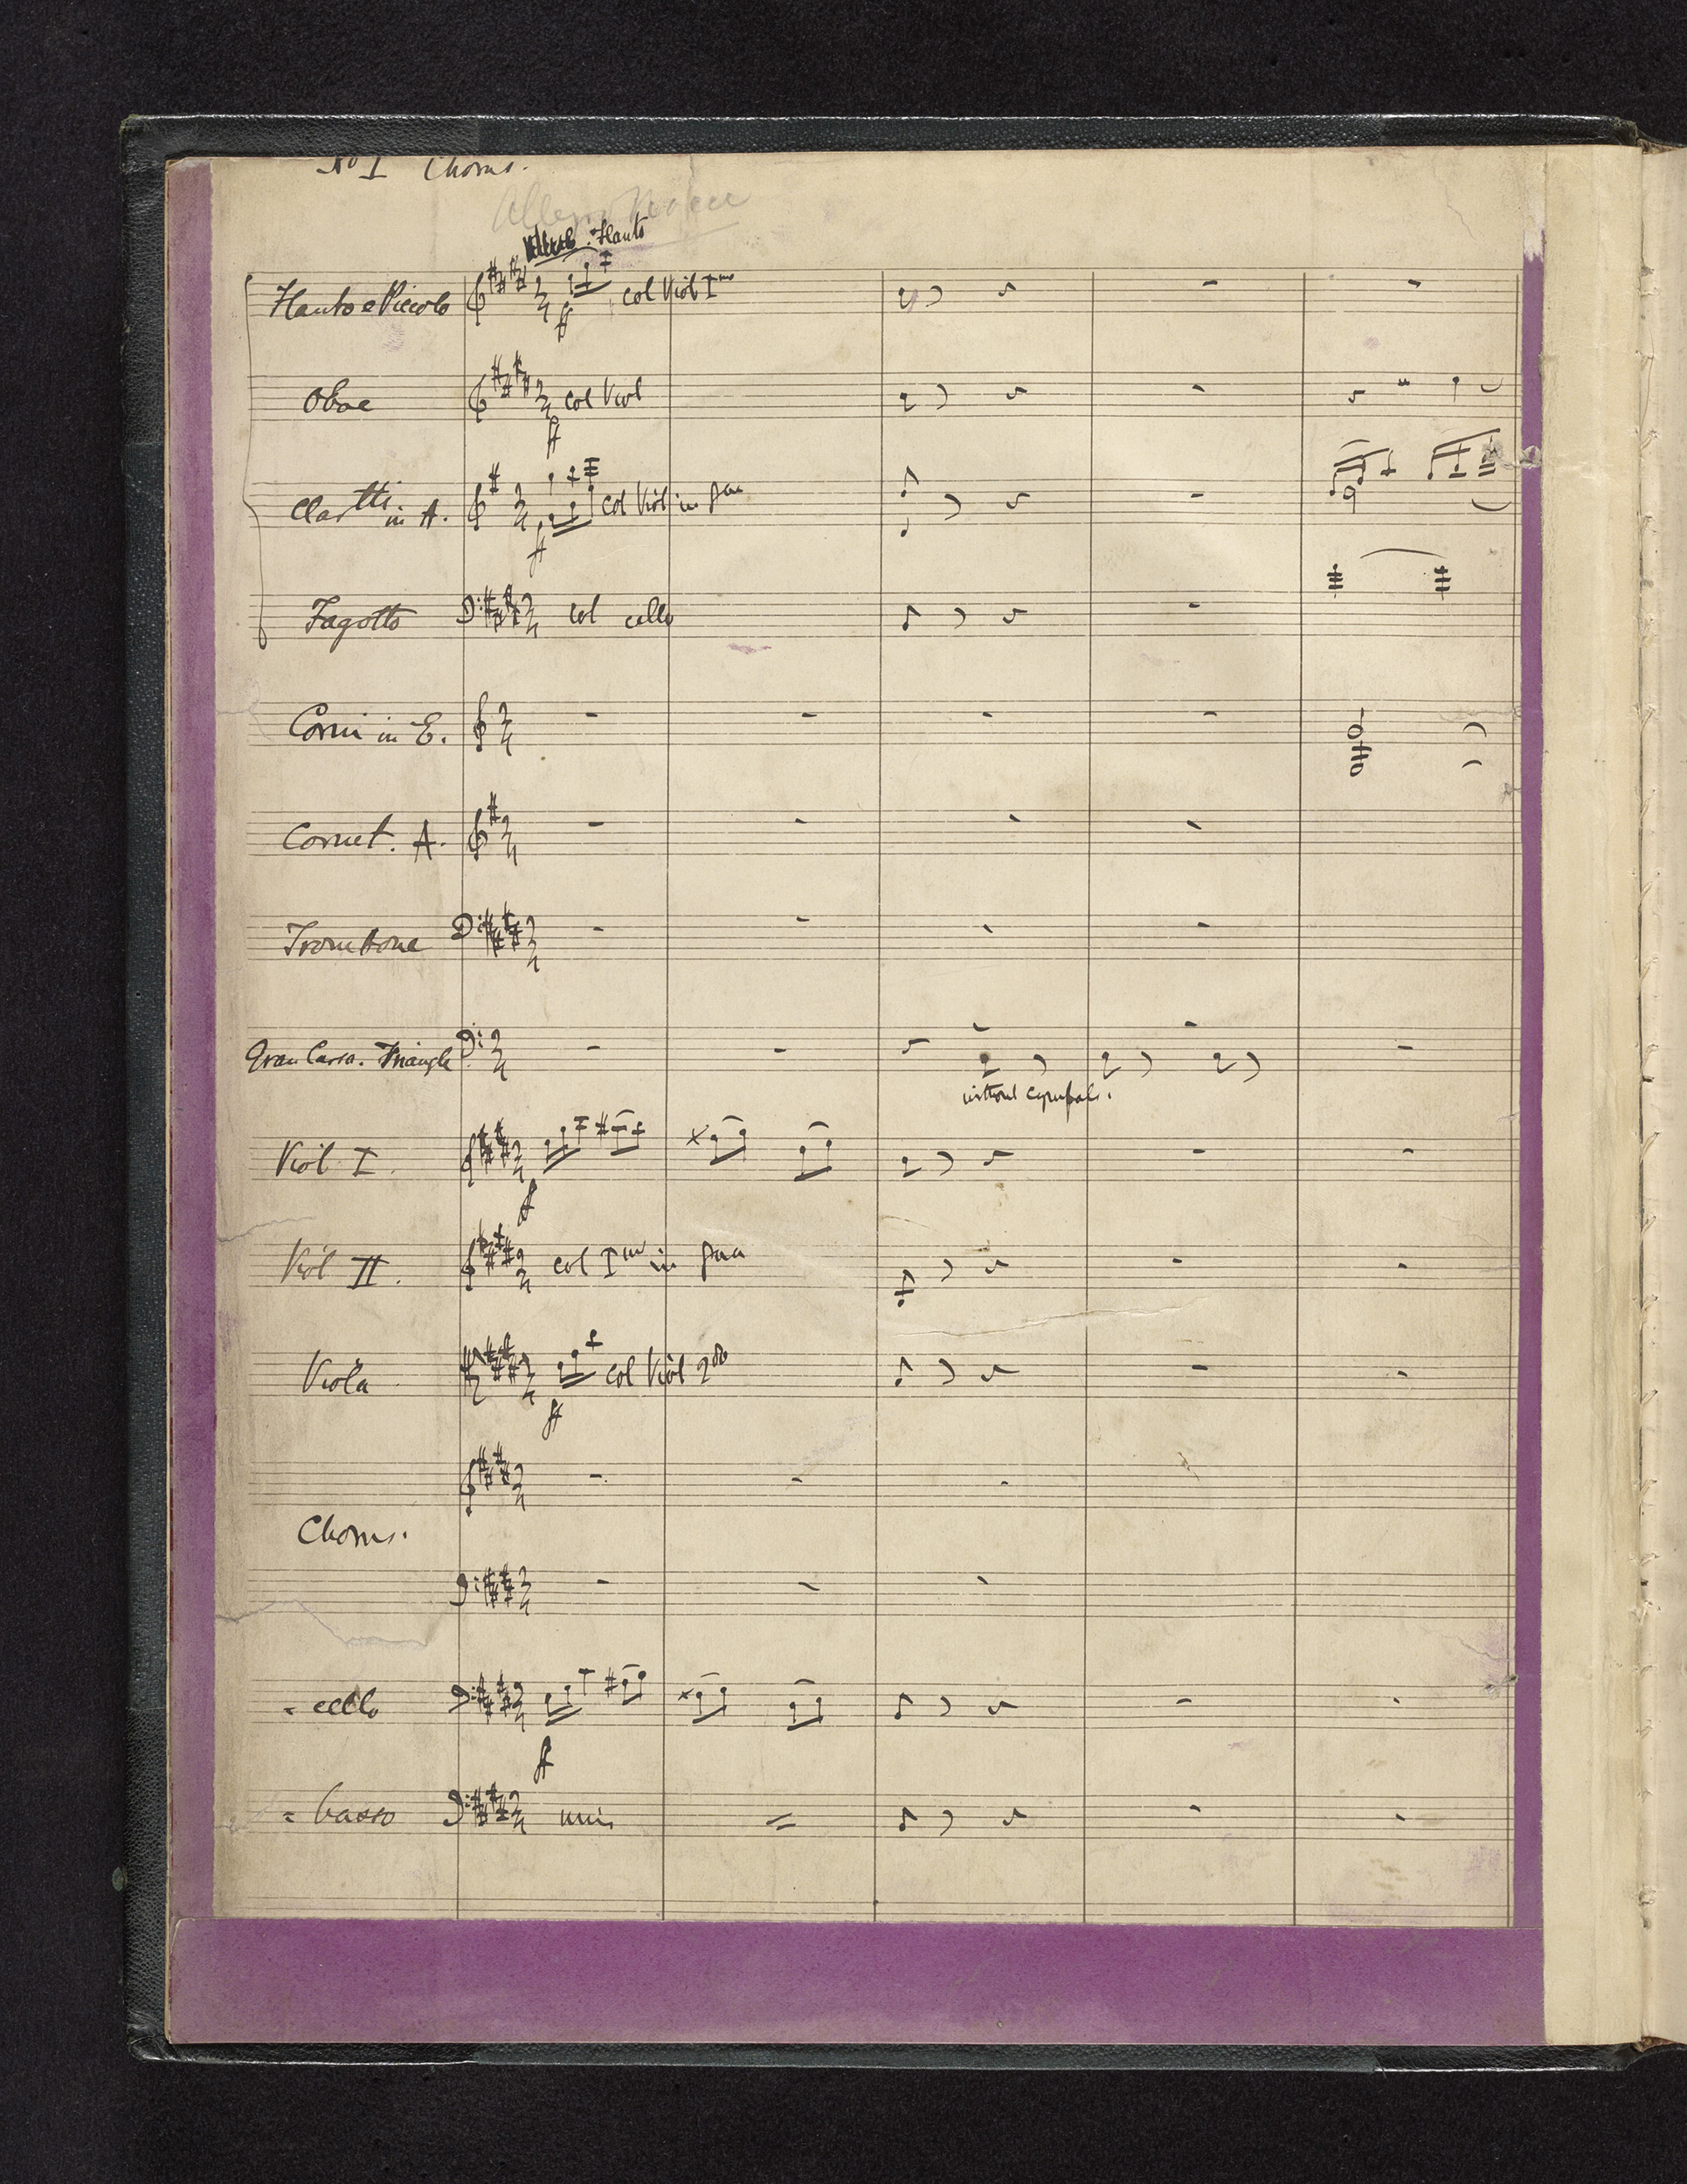 No I Chorus.
Flauto
Flauto e Piccolo ff col Viol Imo
Oboe ff col Viol
Clartti in A. ff col Viol in 8va
Fagotto col cello
Corni in E.
Cornet. A.
Trombone
Gran Cassa. Triangle
without cymbals.
Viol I. ff
Viol II. col Imo in 8va
Viola ff col Viol 2do
Chorus.
cello ff
basso unis